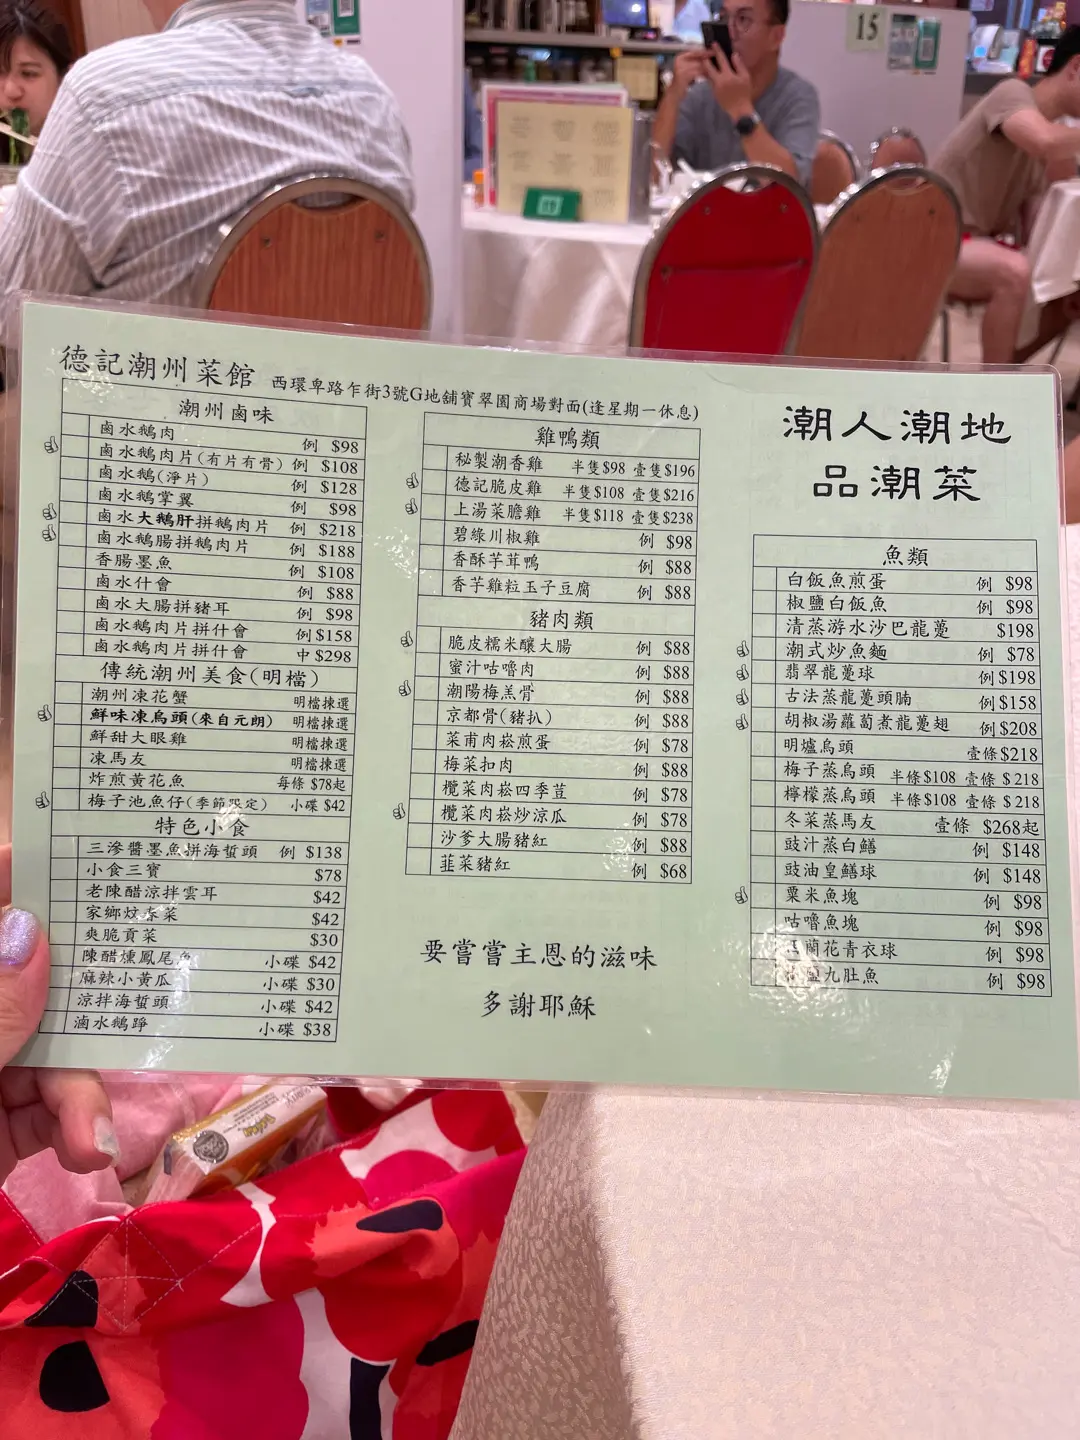 15
德記潮州菜館 西環卑路乍街3號G地舖寶翠園商場對面(逢星期一休息)
潮州鹵味
鹵水鵝肉 例 $98
鹵水鵝肉片(有片有骨) 例 $108
鹵水鵝(淨片) 例 $128
鹵水鵝掌翼 例 $98
鹵水大鵝肝拼鵝肉片 例 $218
鹵水鵝腸拼鵝肉片 例 $188
香腸墨魚 例 $108
鹵水什會 例 $88
鹵水大腸拼豬耳 例 $98
鹵水鵝肉片拼什會 例 $158
鹵水鵝肉片拼什會 中 $298
傳統潮州美食(明檔)
潮州凍花蟹 明檔揀選
鮮味凍烏頭(來自元朗) 明檔揀選
鮮甜大眼雞 明檔揀選
凍馬友 明檔揀選
炸煎黃花魚 每條 $78起
梅子池魚仔(季節限定) 小碟 $42
特色小食
三滲醬墨魚拼海蜇頭 例 $138
小食三寶 $78
老陳醋涼拌雲耳 $42
家鄉炆春菜 $42
爽脆貢菜 $30
陳醋燻鳳尾魚 小碟 $42
麻辣小黃瓜 小碟 $30
涼拌海蜇頭 小碟 $42
滷水鵝踭 小碟 $38
雞鴨類
秘製潮香雞 半隻$98 壹隻$196
德記脆皮雞 半隻$108 壹隻$216
上湯菜膽雞 半隻$118 壹隻$238
碧綠川椒雞 例 $98
香酥芋茸鴨 例 $88
香芋雞粒玉子豆腐 例 $88
豬肉類
脆皮糯米釀大腸 例 $88
蜜汁咕嚕肉 例 $88
潮陽梅羔骨 例 $88
京都骨(豬扒) 例 $88
菜甫肉崧煎蛋 例 $78
梅菜扣肉 例 $88
欖菜肉崧四季荳 例 $78
欖菜肉崧炒涼瓜 例 $78
沙爹大腸豬紅 例 $88
韮菜豬紅 例 $68
要嘗嘗主恩的滋味
多謝耶穌
潮人潮地
品潮菜
魚類
白飯魚煎蛋 例 $98
椒鹽白飯魚 例 $98
清蒸游水沙巴龍躉 $198
潮式炒魚麵 例 $78
翡翠龍躉球 例 $198
古法蒸龍躉頭腩 例 $158
胡椒湯蘿蔔煮龍躉翅 例 $208
明爐烏頭 壹條 $218
梅子蒸烏頭 半條 $108 壹條 $218
檸檬蒸烏頭 半條 $108 壹條 $218
冬菜蒸馬友 壹條 $268起
豉汁蒸白鱔 例 $148
豉油皇鱔球 例 $148
粟米魚塊 例 $98
咕嚕魚塊 例 $98
蘭花青衣球 例 $98
九肚魚 例 $98